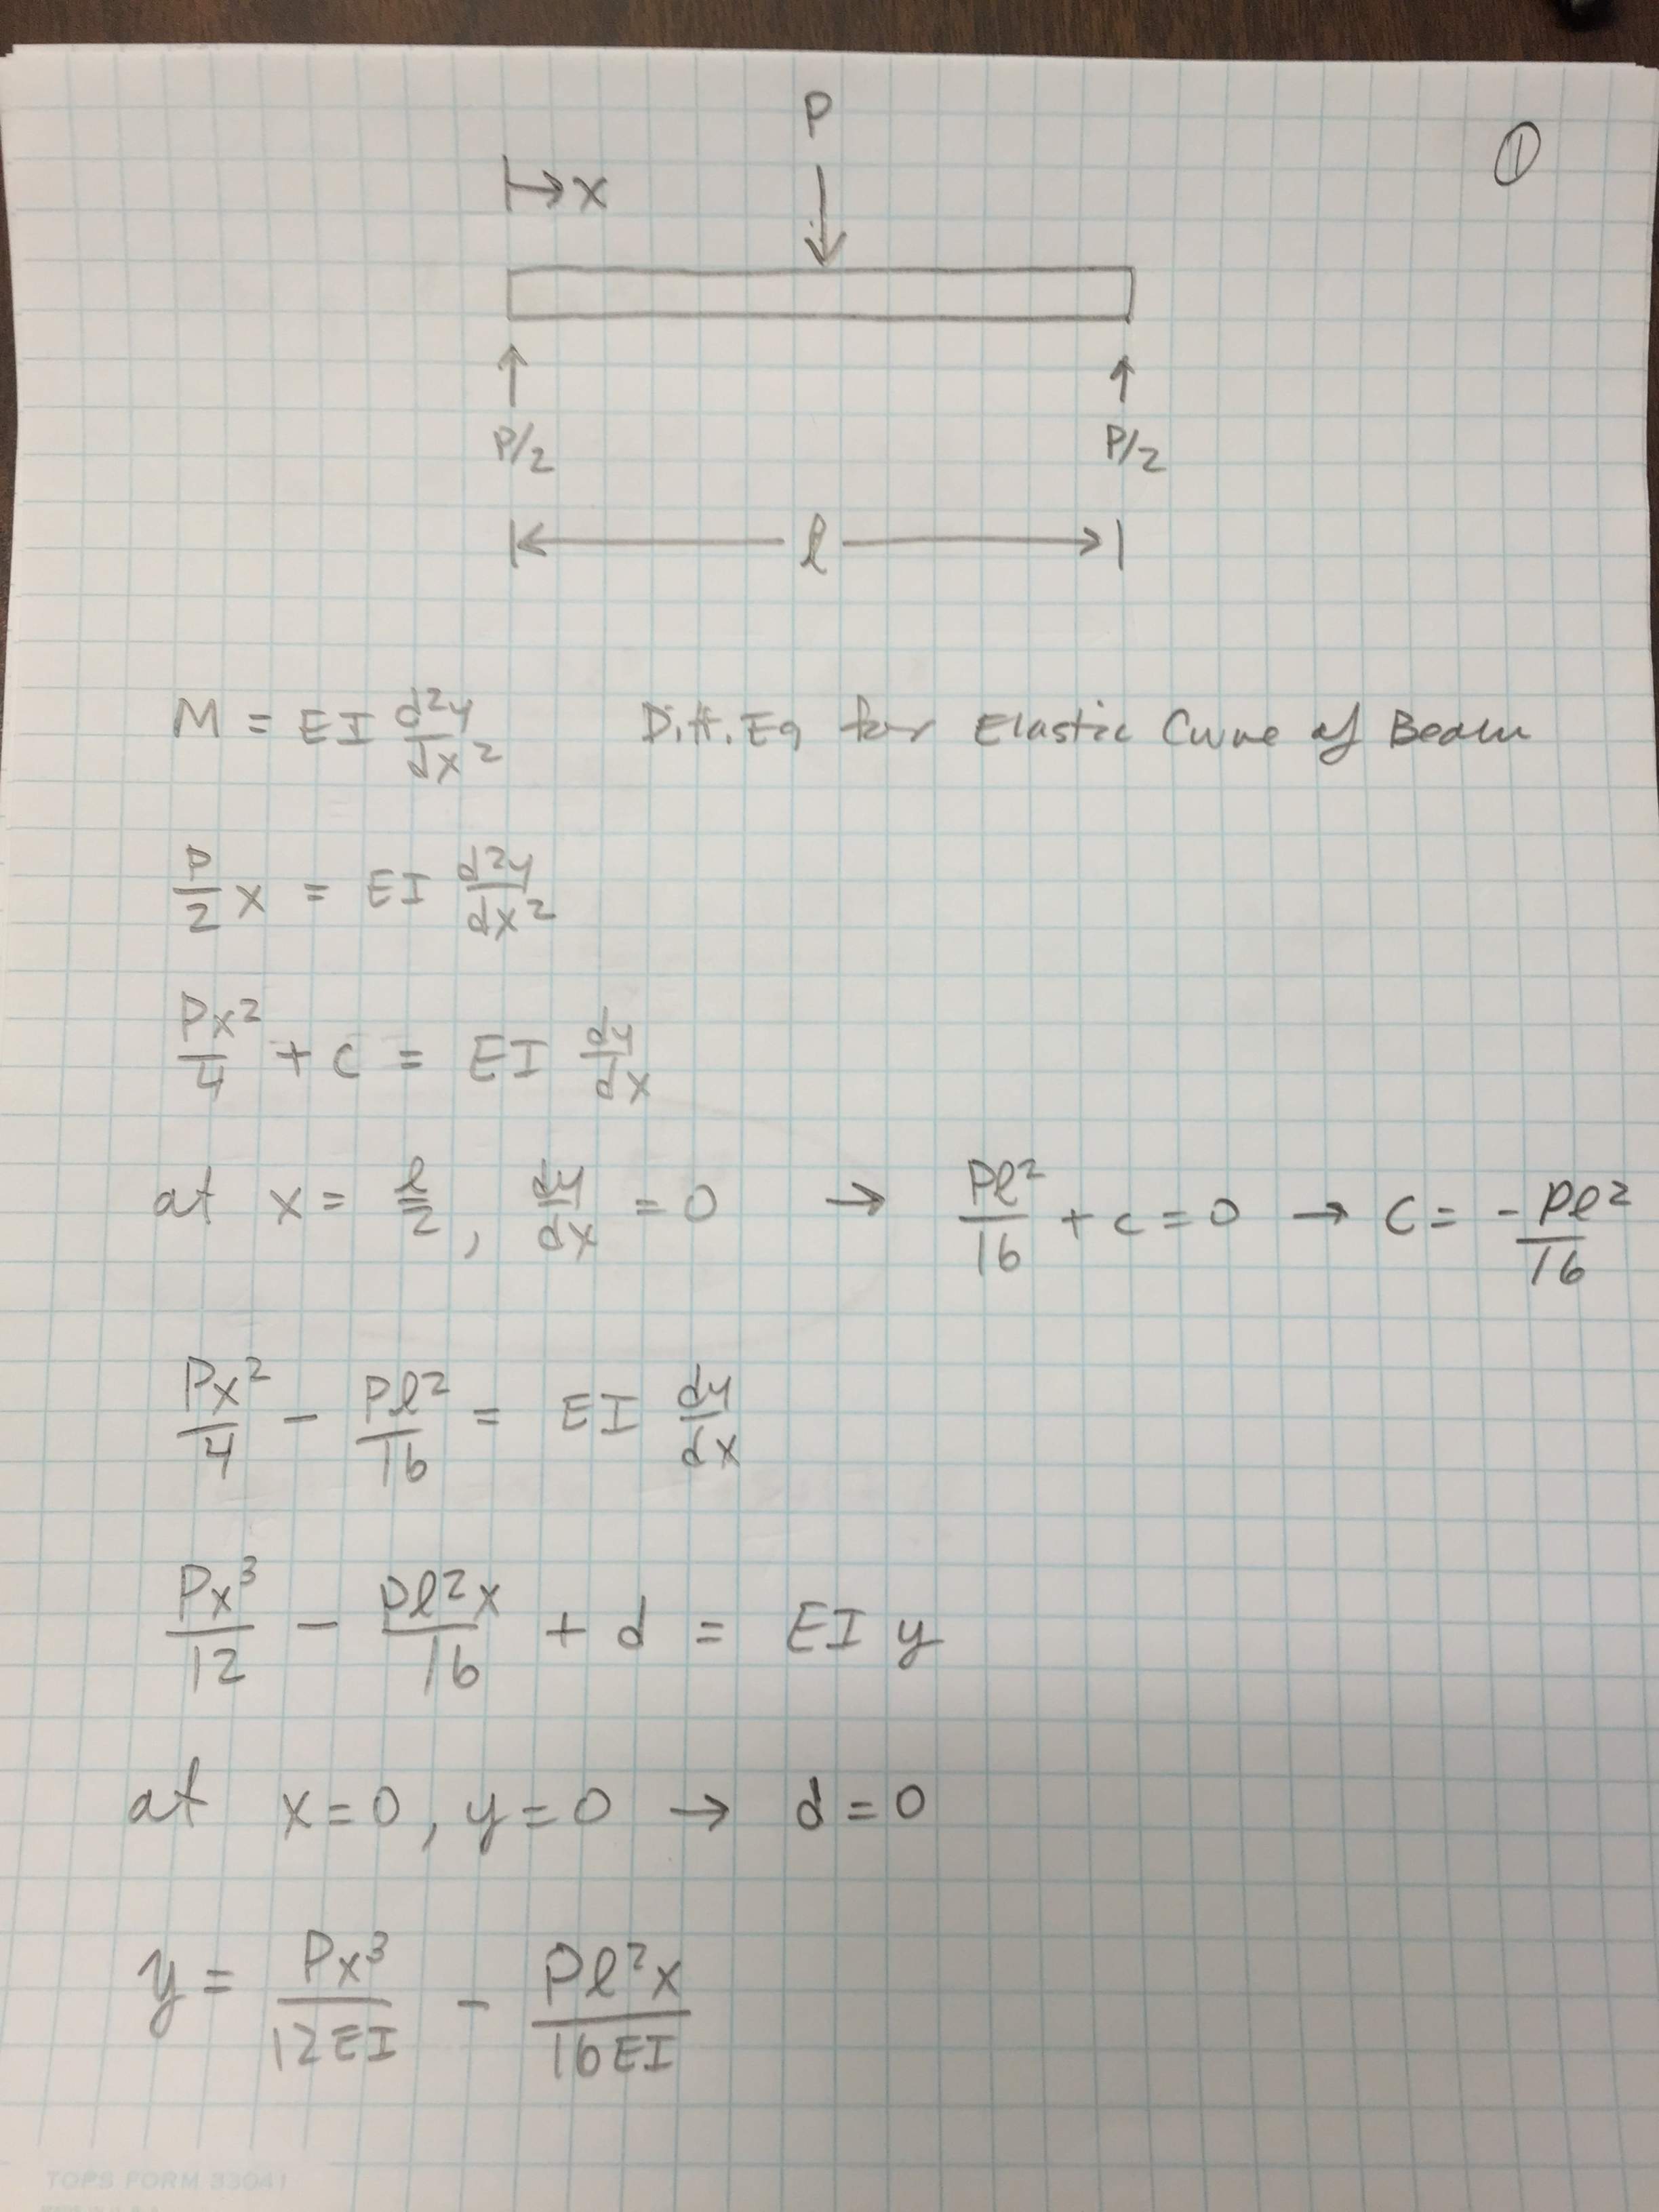 P
①
x
P/2 P/2
l
M = EI d²y/dx² Diff. Eq for Elastic Curve of Beam
P/2 x = EI d²y/dx²
Px²/4 + c = EI dy/dx
at x = l/2, dy/dx = 0 → Pl²/16 + c = 0 → c = -Pl²/16
Px²/4 - Pl²/16 = EI dy/dx
Px³/12 - Pl²x/16 + d = EI y
at x=0, y=0 → d=0
y = Px³/12EI - Pl²x/16EI
TOPS FORM 33041